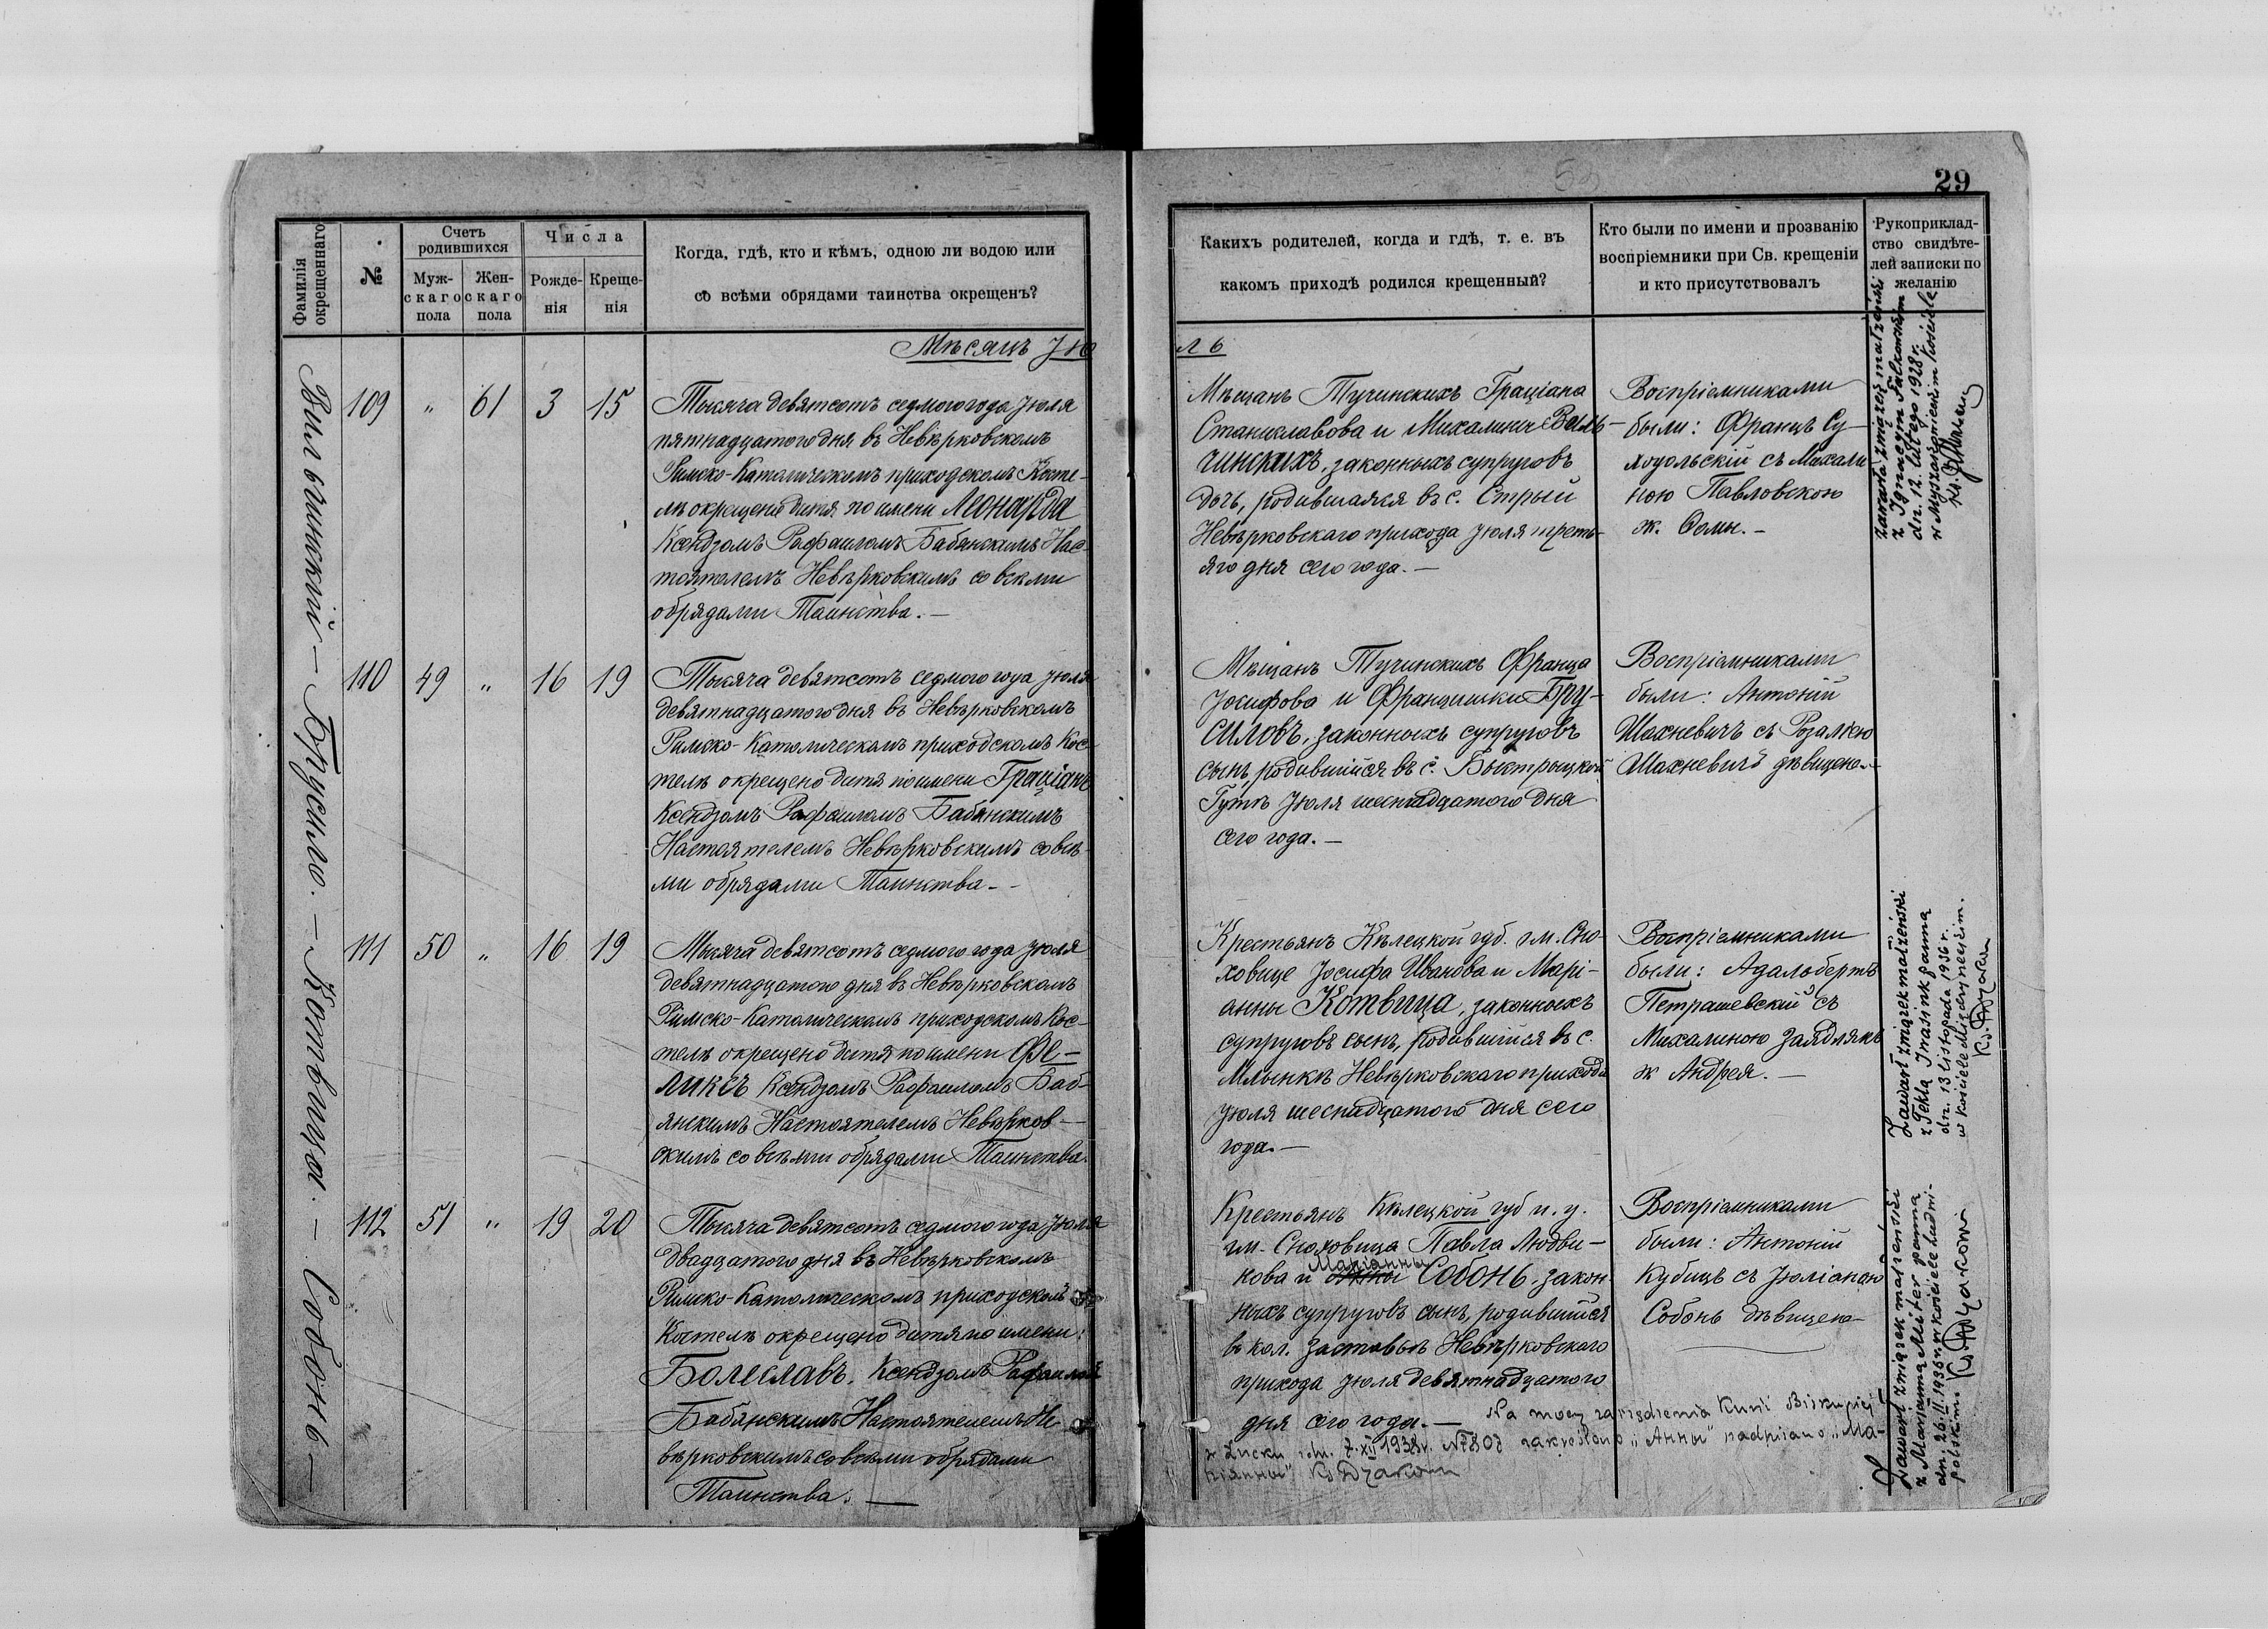 29
Фамилія окрещеннаго
№
Счетъ родившихся
Муж-скаго пола
Жен-скаго пола
Числа
Рожде-нія
Креще-нія
Когда, гдѣ, кто и кѣмъ, одною ли водою или
со всѣми обрядами таинства окрещенъ?
Какихъ родителей, когда и гдѣ, т. е. въ
какомъ приходѣ родился крещенный?
Кто были по имени и прозванію
воспріемники при Св. крещеніи
и кто присутствовалъ
Рукоприклад-
ство свидѣте-
лей записки по
желанію
Мѣсяцъ Іюль
Вильчинскій — Брусило. — Котвица. — Собонь —
109 " 61 3 15
Тысяча девятсотъ седмого года Іюля
пятнадцатого дня въ Невѣрковскомъ
Римско-Католическомъ приходскомъ Косте-
лѣ окрещено дитя по имени Леонарда
Ксендзомъ Рафаиломъ Бабянскимъ Нас-
тоятелемъ Невѣрковскимъ со всѣми
обрядами Таинства. —
Мѣщанъ Тучинскихъ Граціана
Станиславова и Михалины Виль-
чинскихъ, законныхъ супруговъ
дочь, родившаяся въ с. Стрый
Невѣрковскаго прихода Іюля треть-
яго дня сего года. —
Воспріемниками
были: Францъ Су-
ходольскій съ Михали-
ною Павловскою
ж. Ѳомы. —
Zawarła związek małżeński
z Ignacym Falkowskim
dn. 12. lutego 1928 r.
w kościele
110 49 " 16 19
Тысяча девятсотъ седмого года Іюля
девятнадцатого дня въ Невѣрковскомъ
Римско-Католическомъ приходскомъ Кос-
телѣ окрещено дитя по имени Граціанъ
Ксендзомъ Рафаиломъ Бабянскимъ
Настоятелемъ Невѣрковскимъ со всѣ-
ми обрядами Таинства. -
Мѣщанъ Тучинскихъ Франца
Іосифова и Францишки Бру-
силовъ, законныхъ супруговъ
сынъ, родившійся въ с. Быстрыцкой
Гутѣ Іюля шеснадцатого дня
сего года. —
Воспріемниками
были: Антоній
Шахневичъ съ Розаліею
Шахневичъ дѣвицею. -
111 50 " 16 19
Тысяча девятсотъ седмого года Іюля
девятнадцатого дня въ Невѣрковскомъ
Римско-Католическомъ приходскомъ Кос-
телѣ окрещено дитя по имени Фе-
ликсъ Ксендзомъ Рафаиломъ Баб-
янскимъ Настоятелемъ Невѣрков-
скимъ со всѣми обрядами Таинства.
Крестьянъ Кѣлецкой губ. гм. Сно-
ховице Іосифа Иванова и Марі-
анны Котвица, законныхъ
супруговъ сынъ, родившійся въ с.
Млынкѣ Невѣрковскаго прихода
Іюля шеснадцатого дня сего
года. —
Воспріемниками
были: Адальбертъ
Петрашевскій съ
Михалиною Заядлякъ
ж Андрея. —
Zawarł związek małżeński
z Teklą Jrasink panną
dn. 13 listopada 1936 r.
w kościele Międzyrzeckim.
112 51 " 19 20
Тысяча девятсотъ седмого года Іюля
двадцатого дня въ Невѣрковскомъ
Римско-Католическомъ приходскомъ
Костелѣ окрещено дитя по имени:
Болеславъ. Ксендзомъ Рафаиломъ
Бабянскимъ Настоятелемъ Не-
вѣрковскимъ со всѣми обрядами
Таинства. —
Крестьянъ Кѣлецкой губ и. у.
гм. Сноховица Павла Людви-
Маріанны
кова и Анны Собонь, закон-
ныхъ супруговъ сынъ, родившійся
въ кол. Заставье Невѣрковскаго
прихода Іюля девятнадцатого
дня сего года. — Na mocy zarządzenia Kurii Biskupiej
w Łucku z dn. 7.XII 1938 r. N 7808 zakreślono „Анны" nadpisano „Ма-
ріанны" Ks
Воспріемниками
были: Антоній
Кубицъ съ Юліаною
Собонь дѣвицею —
Zawarł związek małżeński
z Marjanną Miter panną
dn. 26.II.1936 r. w kościele Ludwi-
polskim. Ks